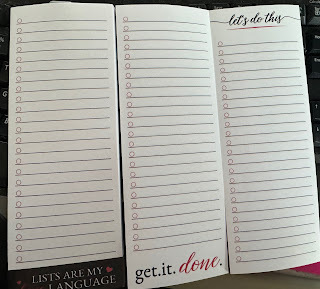 let's do this
get.it. done.
LISTS ARE MY
LANGUAGE